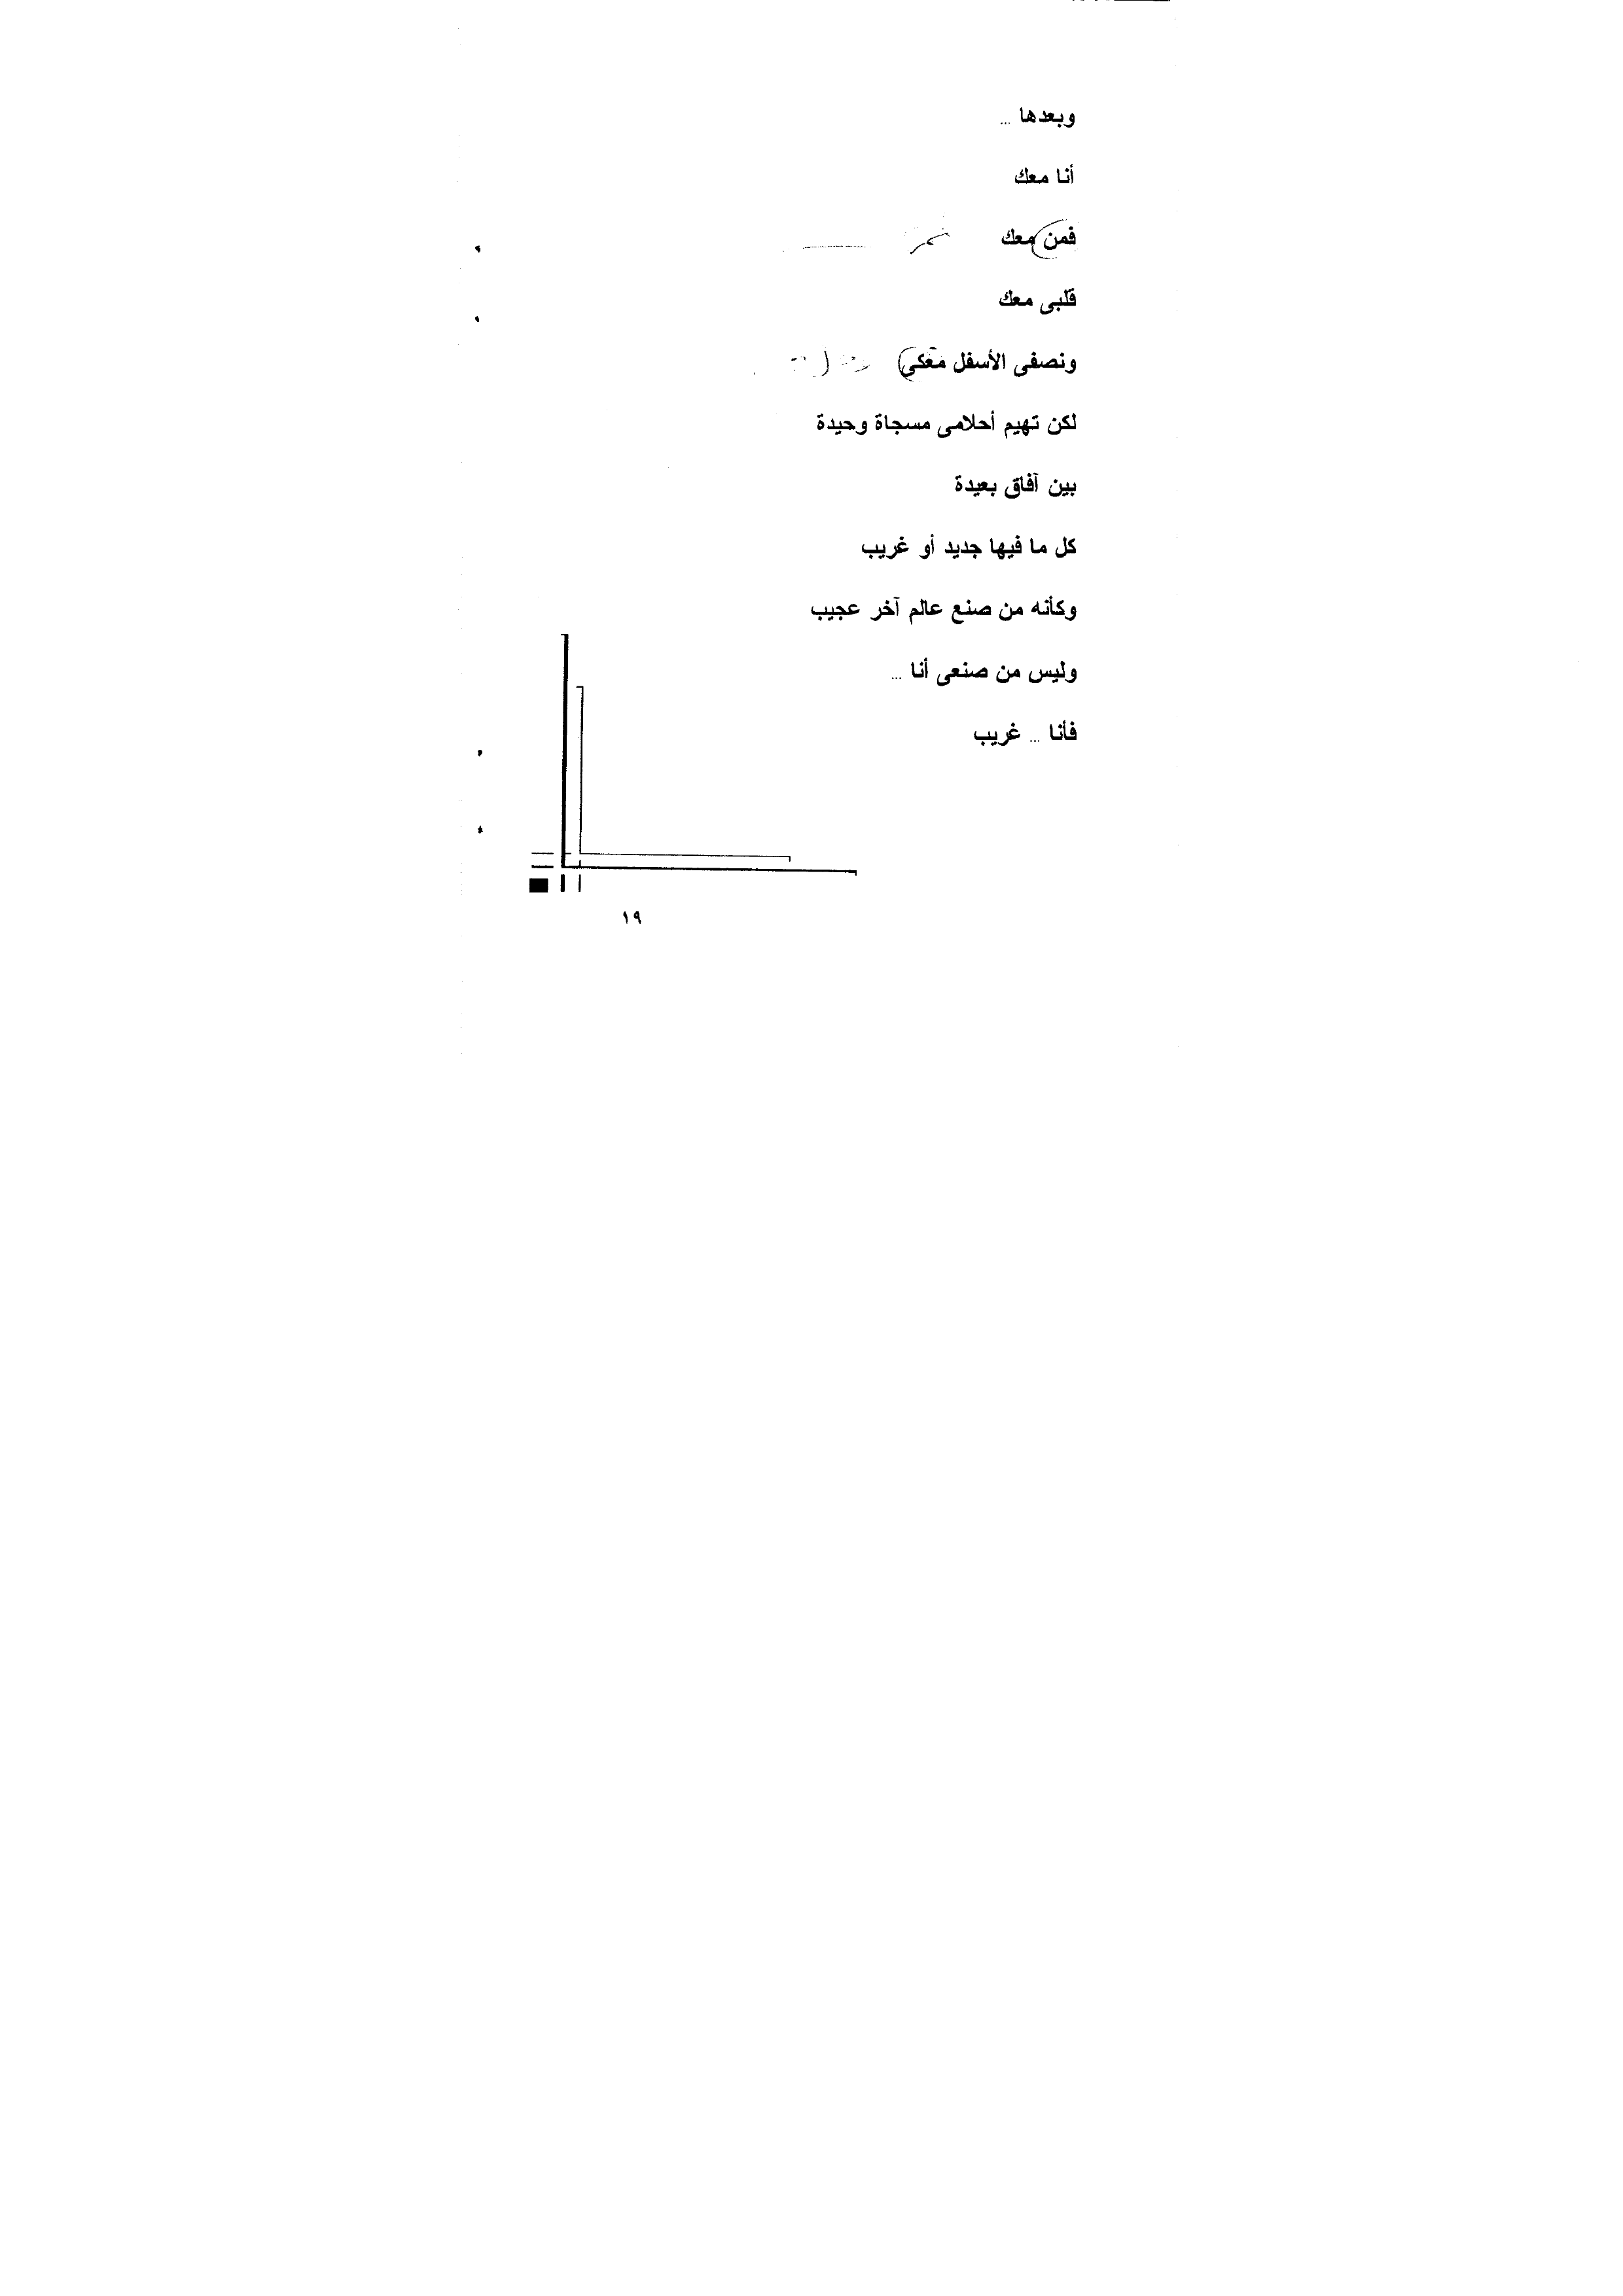 وبعدها ...
أنا معك
فمن معك
قلبى معك
ونصفى الأسفل معكي
لكن تهيم أحلامى مسجاة وحيدة
بين آفاق بعيدة
كل ما فيها جديد أو غريب
وكأنه من صنع عالم آخر عجيب
وليس من صنعى أنا ...
فأنا ... غريب
١٩